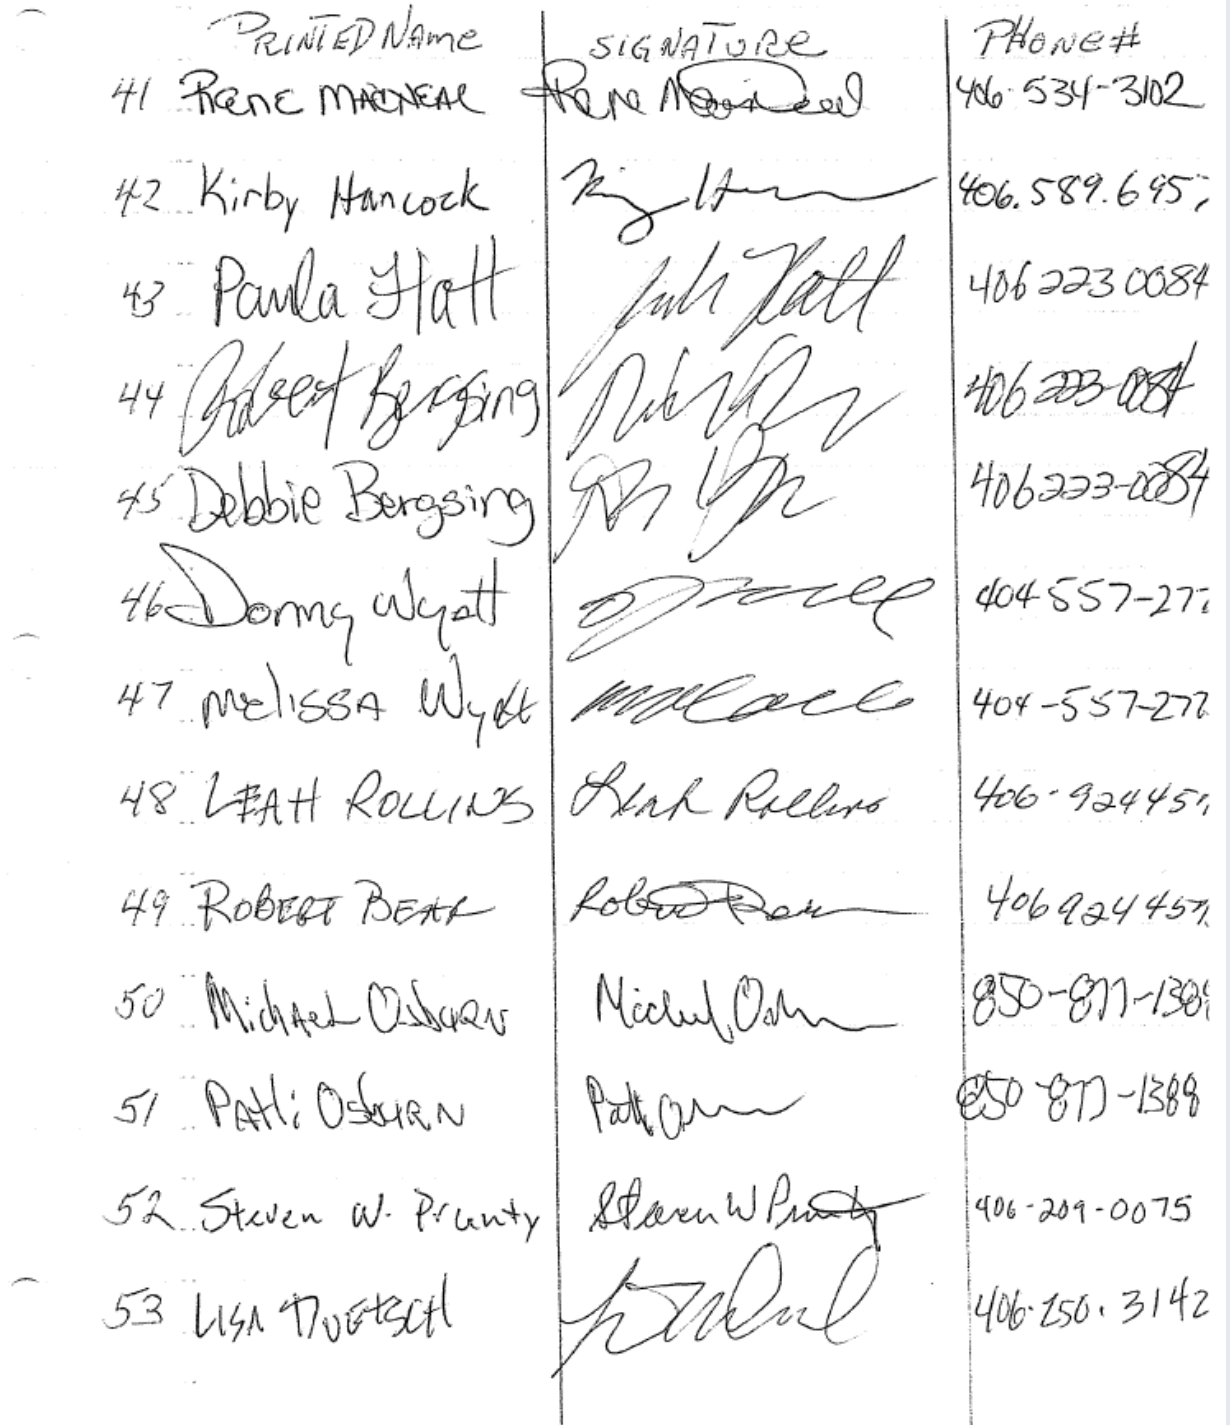 PRINTED NAME SIGNATURE PHONE#
41 Rene MACNEAL Rene MacNeal 406-534-3102
42 Kirby Hancock 406.589.695
43 Paula Hatt Hatt 406 223 0084
44 Robert Bergsing 406 223-0084
45 Debbie Bergsing 406 223-0084
46 Donny Wyatt 404-557-27
47 MELISSA Wyatt 404-557-277
48 LEAH ROLLINS Leah Rollins 406-92445
49 ROBERT BEAR Robert Bear 406 924 457
50 Michael Osburn Michael 850-877-138
51 Patti Osburn Patti 850-877-1388
52 Steven W. Prunty Steven W Prunty 406-209-0075
53 LISA 406-250.3142